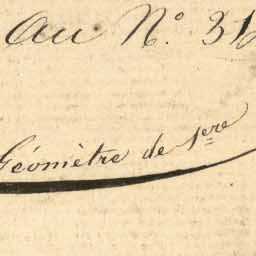 au N.o 31
Géomètre de 1ere